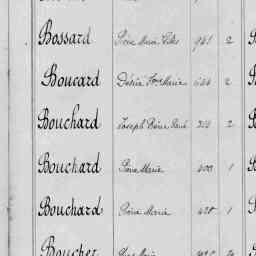 Bossard Pierre Marie 941 2
Boucard Désiré Marie 2
Bouchard Joseph Pierre René 2
Bouchard Pierre Marie 400 1
Bouchard Pierre Marie 428 1
Boucher